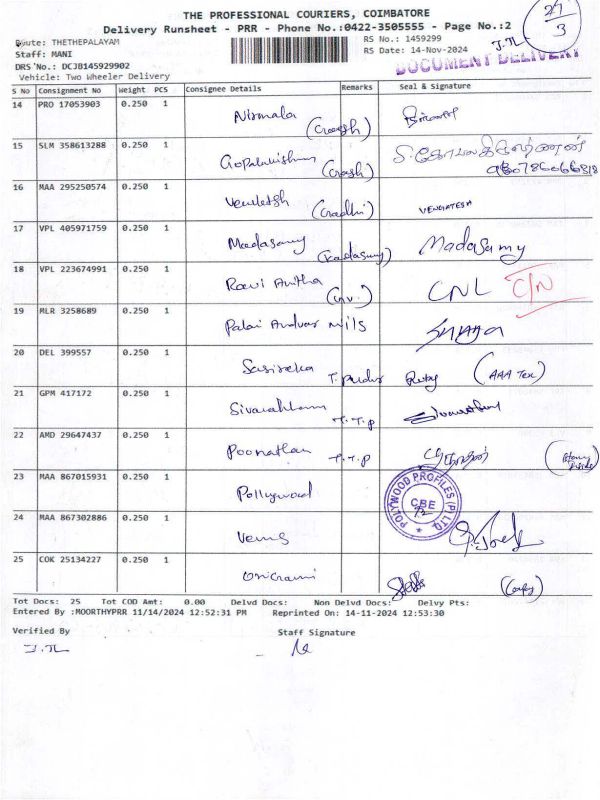 THE PROFESSIONAL COURIERS, COIMBATORE
Delivery Runsheet - PRR - Phone No.:0422-3505555 - Page No.:2
27/3
Route: THETHEPALAYAM
RS No.: 1459299
Staff: MANI
RS Date: 14-Nov-2024
DRS No.: DCJB145929902
DOCUMENT DELIVERY
Vehicle: Two Wheeler Delivery
S No Consignment No Weight PCS Consignee Details Remarks Seal & Signature
14 PRO 17053903 0.250 1 Nirmala
15 SLM 358613288 0.250 1 Gopalakrishnan
16 MAA 295250574 0.250 1 Venketsh VENGATESH
17 VPL 405971759 0.250 1 Madasamy (Madasamy) Madasamy
18 VPL 223674991 0.250 1 Ravi Anitha CNL C/N
19 MLR 3258689 0.250 1 Palani Andvar mils
20 DEL 399557 0.250 1 Sasireka T. pudur Ruby (AAA Tex)
21 GPM 417172 0.250 1 T.T.P
22 AMD 29647437 0.250 1 Poonathan T.T.P
23 MAA 867015931 0.250 1 Pollywood
POLYWOOD PROFILES (P) LTD. CBE
24 MAA 867302886 0.250 1 Venus
25 COK 25134227 0.250 1
Tot Docs: 25 Tot COD Amt: 0.00 Delvd Docs: Non Delvd Docs: Delvy Pts:
Entered By :MOORTHYPRR 11/14/2024 12:52:31 PM Reprinted On: 14-11-2024 12:53:30
Verified By Staff Signature